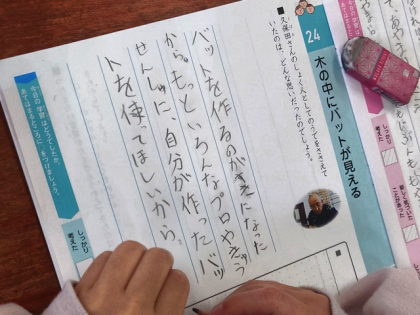 24
木の中にバットが見える
■久保田さんのしょく人としてのうでをささえて
いたのは、どんな思いだったのでしょう。
バットを作るのがすきになった
から。もっといろんなプロやきゅう
せんしゅに、自分が作ったバッ
トを使ってほしいから。
今日の学習はどうでしたか。
あてはまるところに、色をつけましょう。
しっかり
考えた
しっかり
考えた
新しく気づいた
ことがあった